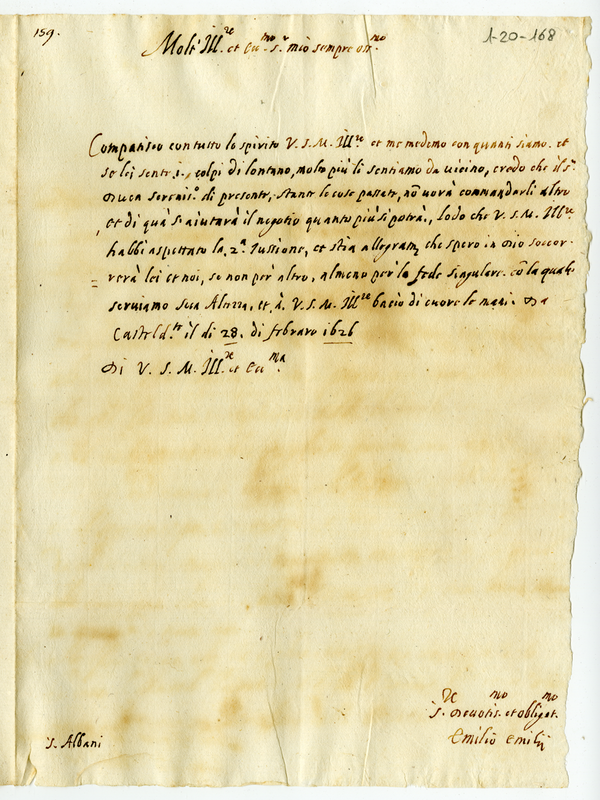 159.
1-20-168
Molt' Ill.re et Ecc.mo s.r mio sempre oss.mo
Compatisco con tutto lo spirito V. S. M. Ill.re et me medemo con quanti siamo. et
se lei sente i colpi di lontano, molto più li sentiamo da vicino, credo che il s.r
Duca Sereniss.o di presente, stante le cose passate, nõ vorà commandarli altro
et di quà s'aiutarà il negotio quanto più si potrà, lodo che V. S. M. Ill.re
habbi aspettato la 2.a Iussione, et stia allegram.te che spero in Dio soccor-
rerà lei et noi, se non per altro, almeno per la fede singulare cõ la quale
serviamo Sua Altezza, et à V. S. M. Ill.re bacio di cuore le mani. Da
Casteld.te il di 28. di febraro 1626
Di V. S. M. Ill.re et Ecc.ma
s.re Devotis.mo et obligat.mo
Emilio Emilij
s. Albani